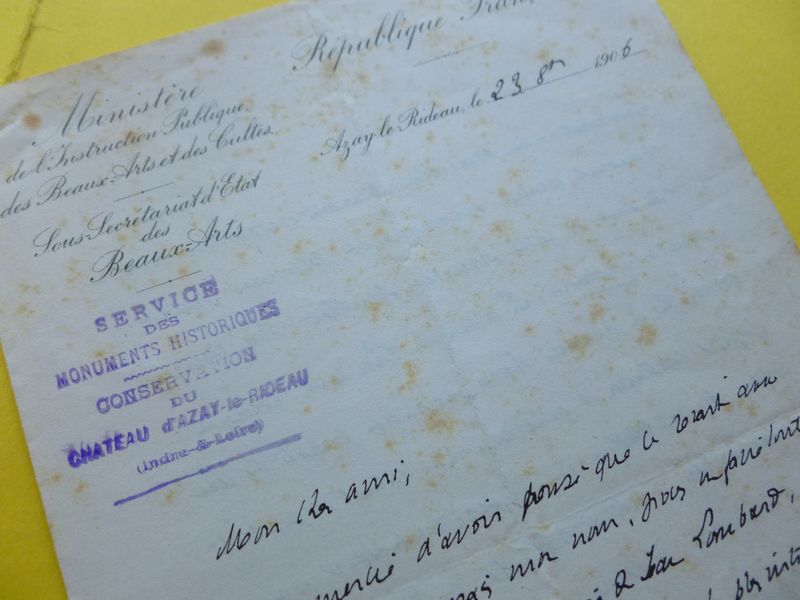 Ministère
de l'Instruction Publique,
des Beaux-Arts et des Cultes.
Sous-Secrétariat d'État
des
Beaux-Arts
République
Azay-le-Rideau, le 23 8bre 1906
SERVICE
DES
MONUMENTS HISTORIQUES
CONSERVATION
DU
CHATEAU d'AZAY-le-RIDEAU
(Indre-&-Loire)
Mon cher ami,
d'avoir pensé que ce serait
mon nom,
Jean Lombard,